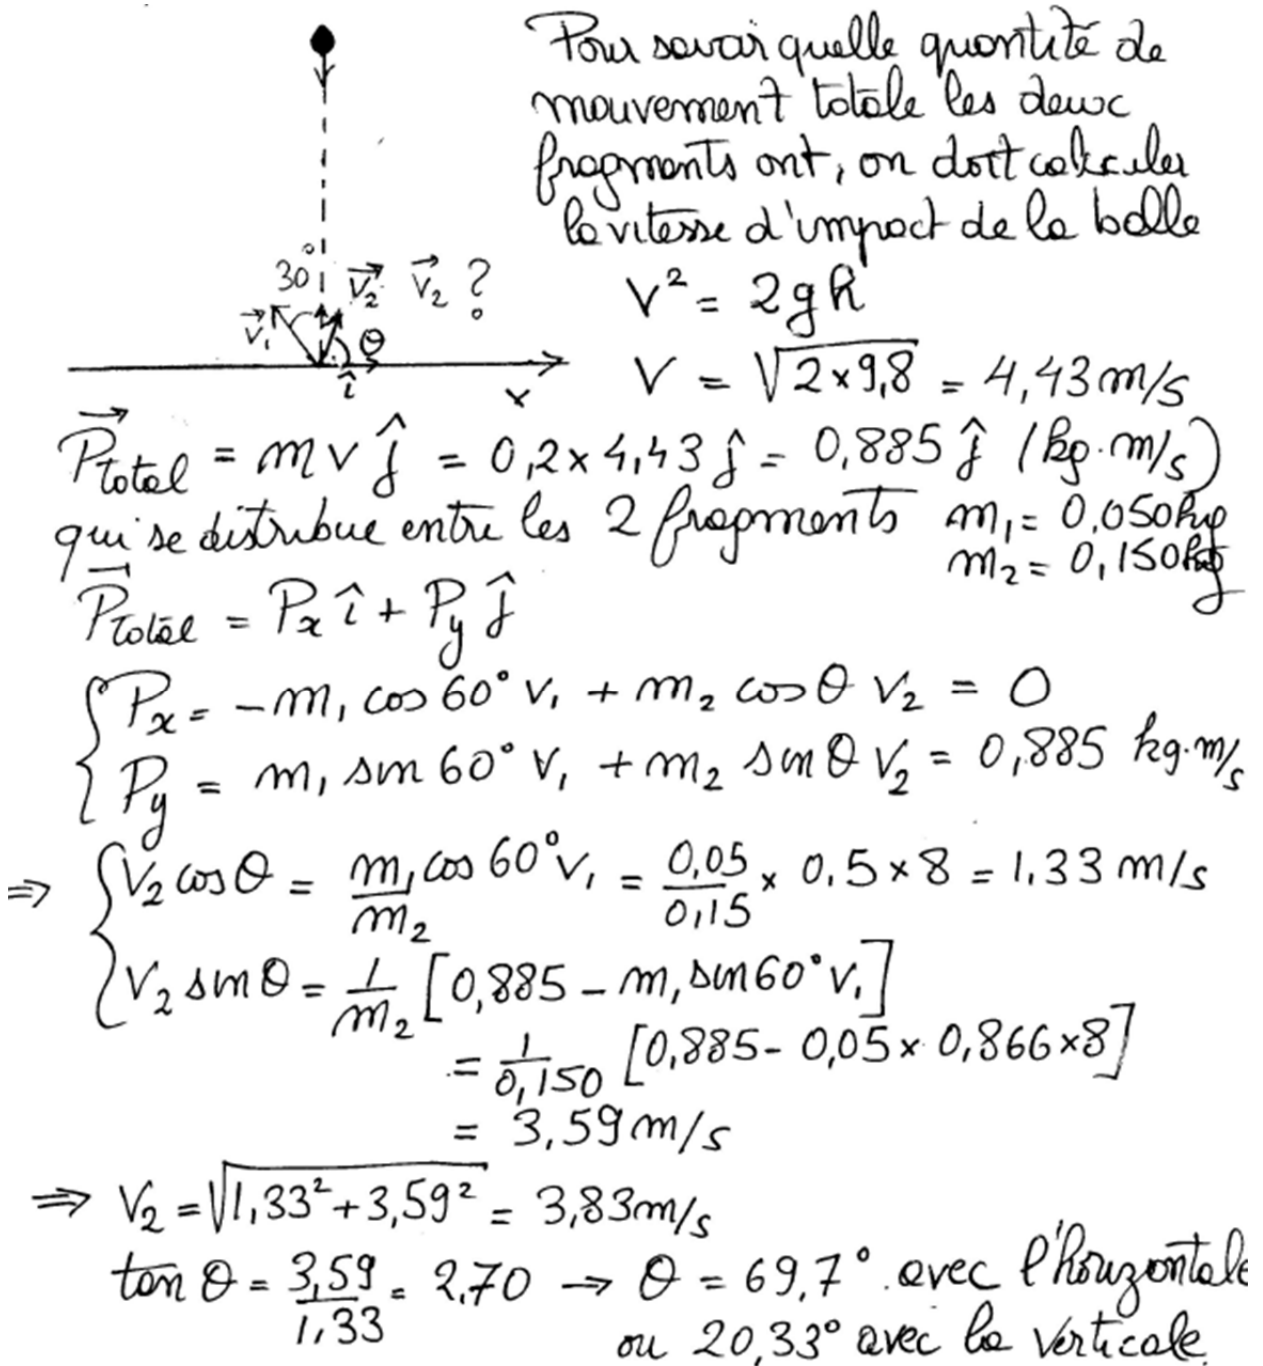 Pour savoir quelle quantité de
mouvement totale les deux
fragments ont, on doit calculer
la vitesse d'impact de la balle
30° V⃗₂ V⃗₂ ?
V⃗₁ θ
î x
V² = 2gh
V = √(2×9,8) = 4,43 m/s
P⃗total = m v ĵ = 0,2 × 4,43 ĵ = 0,885 ĵ (kg.m/s)
qui se distribue entre les 2 fragments m₁ = 0,050 kg
m₂ = 0,150 kg
P⃗total = Pₓ î + Py ĵ
{ Pₓ = -m₁ cos 60° V₁ + m₂ cos θ V₂ = 0
Py = m₁ sin 60° V₁ + m₂ sin θ V₂ = 0,885 kg.m/s
⇒ { V₂ cos θ = m₁ cos 60° V₁ / m₂ = 0,05/0,15 × 0.5 × 8 = 1.33 m/s
V₂ sin θ = 1/m₂ [0,885 - m₁ sin 60° V₁]
= 1/0,150 [0,885 - 0,05 × 0,866 × 8]
= 3,59 m/s
⇒ V₂ = √(1,33² + 3,59²) = 3,83 m/s
tan θ = 3,59/1,33 = 2.70 → θ = 69,7° avec l'horizontale
ou 20,33° avec la verticale